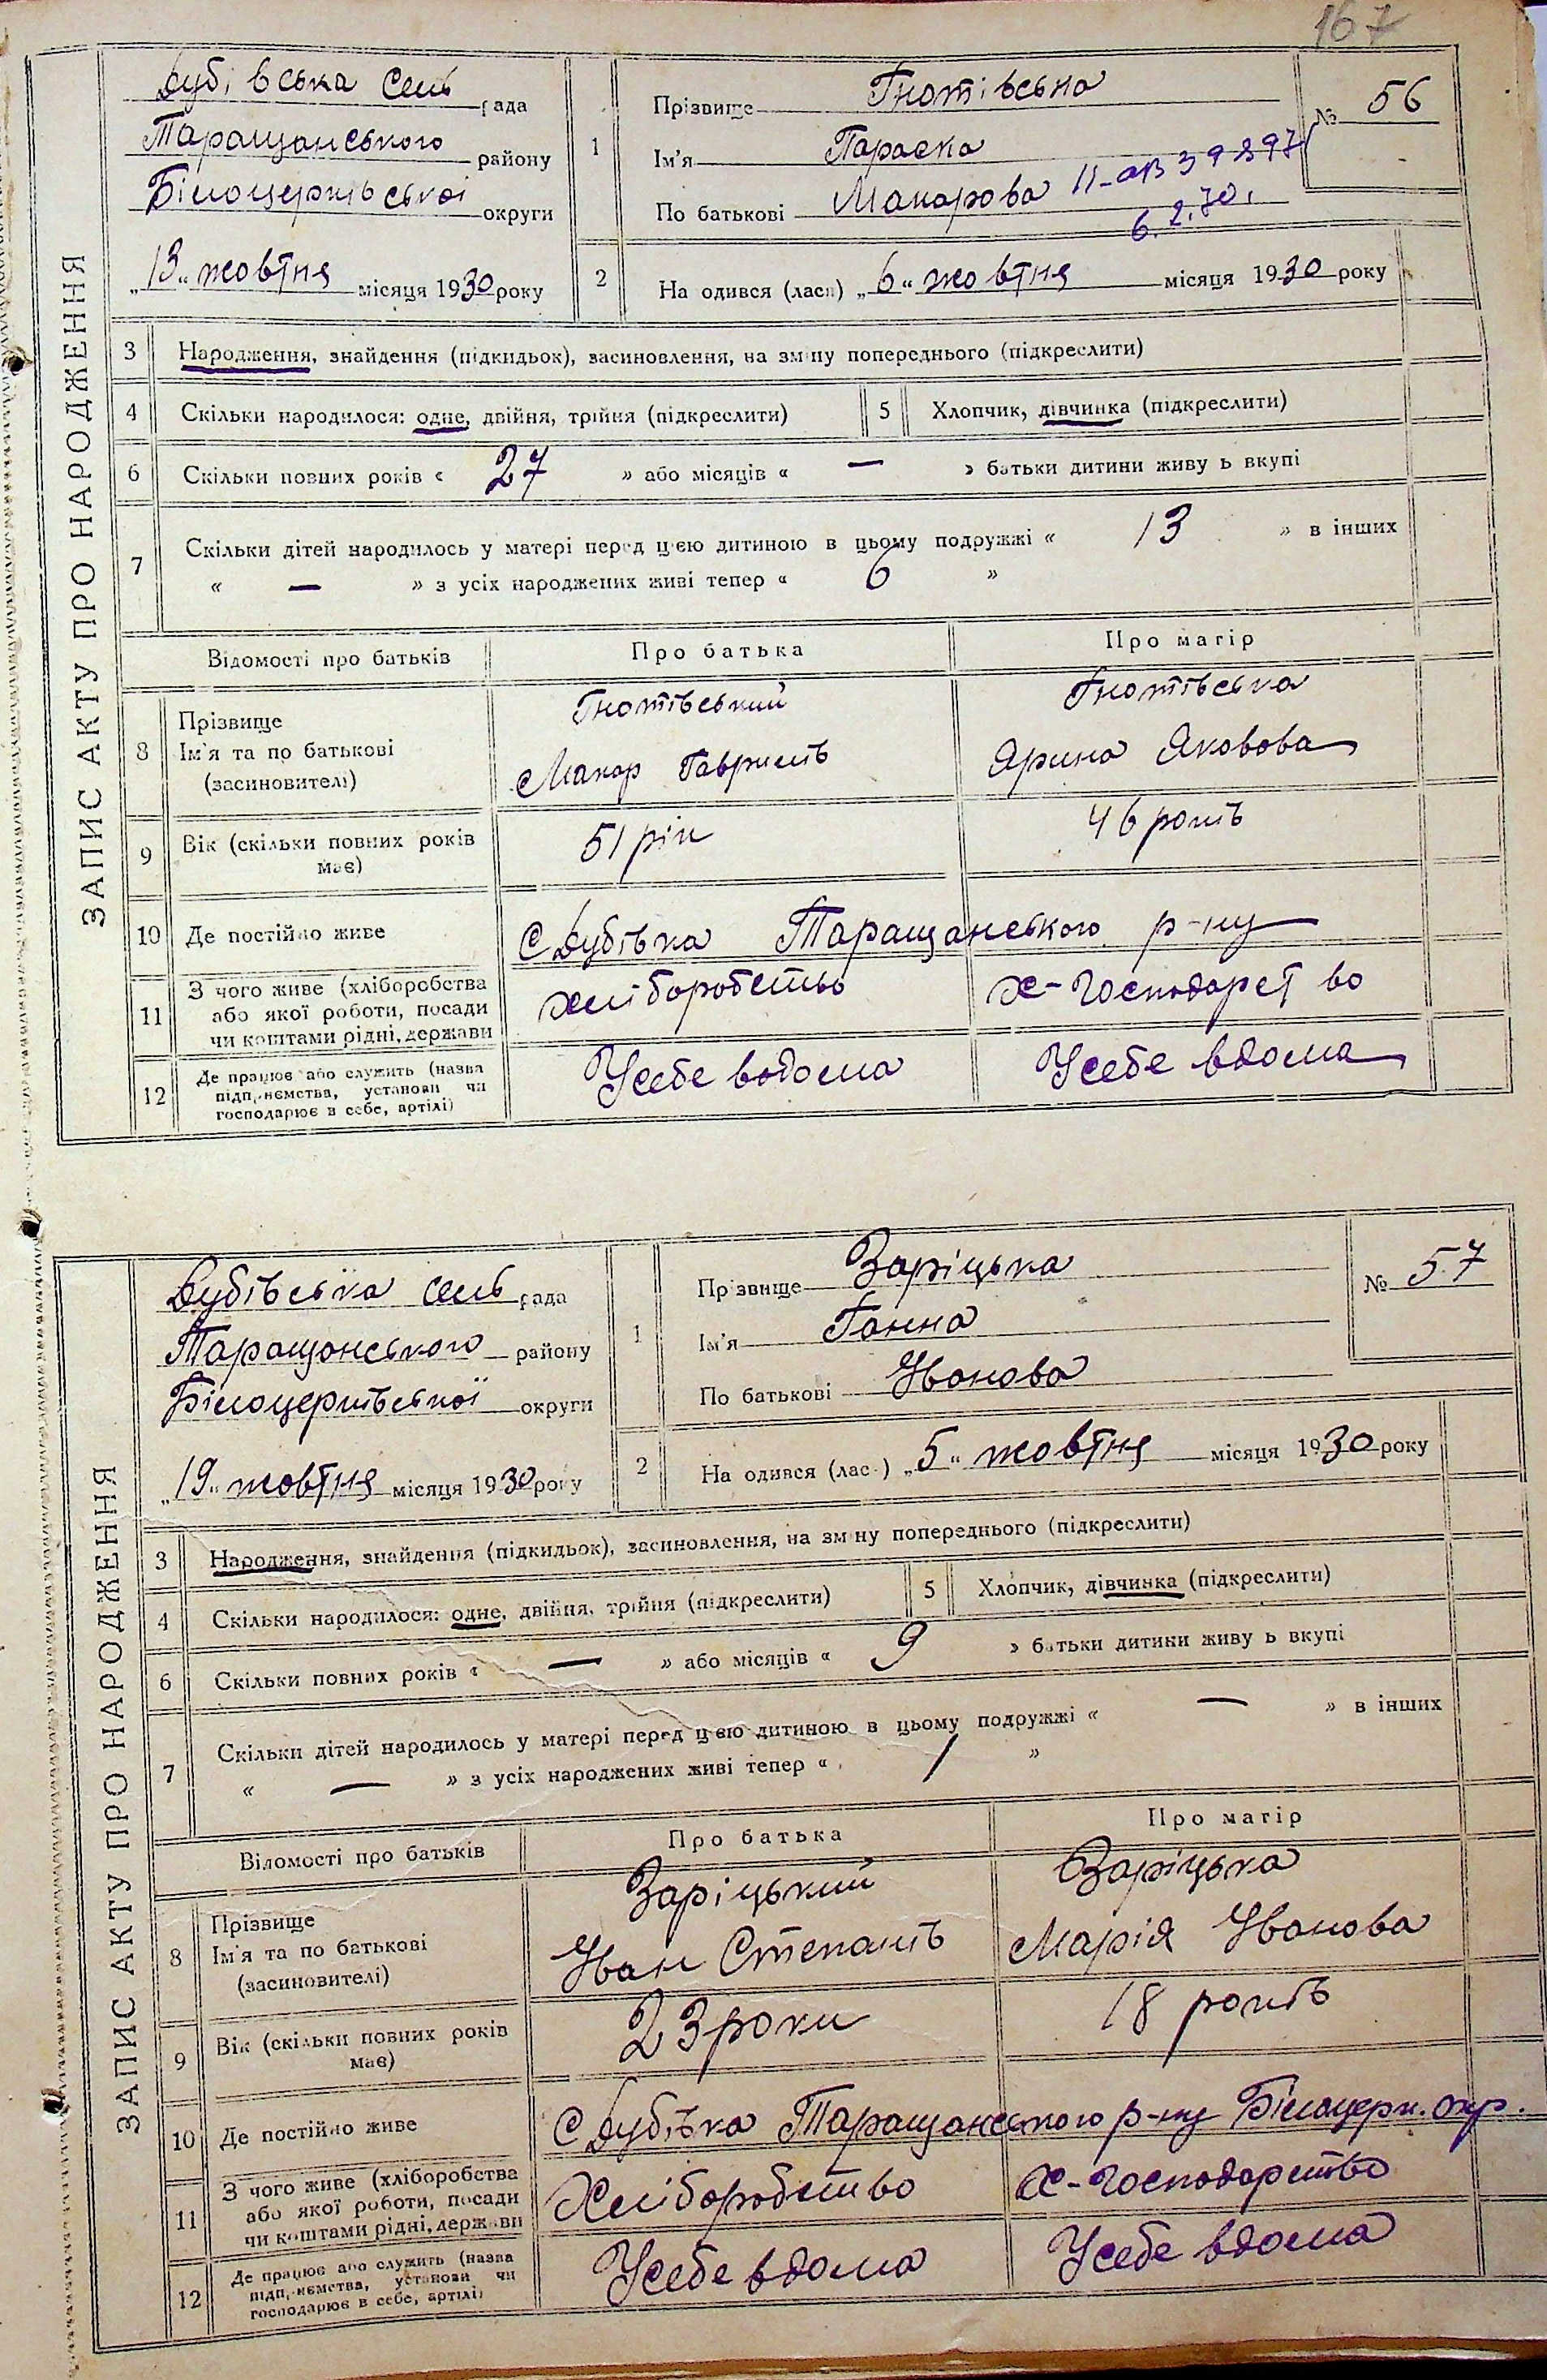 167
ЗАПИС АКТУ ПРО НАРОДЖЕННЯ
Дубівська Сель рада
Таращанського району
Білоцерківської округи
„13“ жовтня місяця 1930 року
1
Прізвище Гнатівська
Ім'я Параска
По батькові Макарова
II-АВ 39897
6.2.70.
№ 56
2
На одився (лася) „6“ жовтня місяця 1930 року
3 Народження, знайдення (підкидьок), засиновлення, на зміну попереднього (підкреслити)
4 Скільки народилося: одне, двійня, трійня (підкреслити) 5 Хлопчик, дівчинка (підкреслити)
6 Скільки повних років « 27 » або місяців « — » батьки дитини живу ь вкупі
7 Скільки дітей народилось у матері перед цією дитиною в цьому подружжі « 13 » в інших
« — » з усіх народжених живі тепер « 6 »
Відомості про батьків Про батька Про матір
8 Прізвище
Ім'я та по батькові
(засиновителі)
Гнатівський
Макар Гаврилів
Гнатівська
Ярина Яковова
9 Вік (скільки повних років має) 51 рік 46 років
10 Де постійно живе С Дубівка Таращанського р-ну
11 З чого живе (хліборобства
або якої роботи, посади
чи коштами рідні, держави
хліборобство х-господарство
12 Де працює або служить (назва
підприємства, установи чи
господарює в себе, артілі)
Усебе вдома Усебе вдома
ЗАПИС АКТУ ПРО НАРОДЖЕННЯ
Дубівська сель рада
Таращанського району
Білоцерківської округи
„19“ жовтня місяця 1930 року
1
Прізвище Заріцька
Ім'я Ганна
По батькові Іванова
№ 57
2
На одився (лас ) „5“ жовтня місяця 1930 року
3 Народження, знайдення (підкидьок), засиновлення, на зміну попереднього (підкреслити)
4 Скільки народилося: одне, двійня, трійня (підкреслити) 5 Хлопчик, дівчинка (підкреслити)
6 Скільки повних років « — » або місяців « 9 » батьки дитини живу ь вкупі
7 Скільки дітей народилось у матері перед цією дитиною в цьому подружжі « — » в інших
« — » з усіх народжених живі тепер « 1 »
Відомості про батьків Про батька Про матір
8 Прізвище
Ім'я та по батькові
(засиновителі)
Заріцький
Іван Степанів
Заріцька
Марія Іванова
9 Вік (скільки повних років має) 23 роки 18 років
10 Де постійно живе С Дубівка Таращанського р-ну Білоцерк. окр.
11 З чого живе (хліборобства
або якої роботи, посади
чи коштами рідні, держави
Хліборобство х-господарство
12 Де працює або служить (назва
підприємства, установи чи
господарює в себе, артілі)
Усебе вдома Усебе вдома